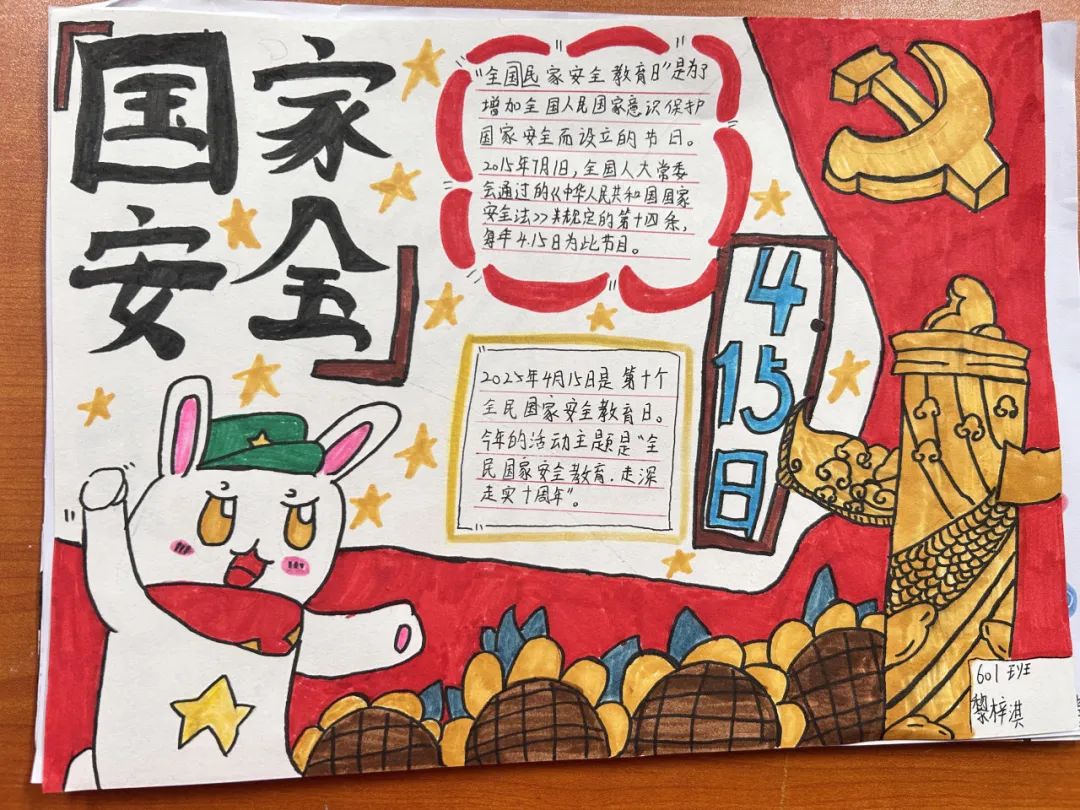 『国家
安全』
"全国民家安全教育日"是为了
增加全国人民国家意识保护
国家安全而设立的节日。
2015年7月1日,全国人大常委
会通过的《中华人民共和国国家
安全法》》规定的第十四条,
每年4.15日为此节日。
4
15
日
2025年4月15日是第十个
全民国家安全教育日。
今年的活动主题是"全
民国家安全教育.走深
走实十周年"。
601班
黎梓淇